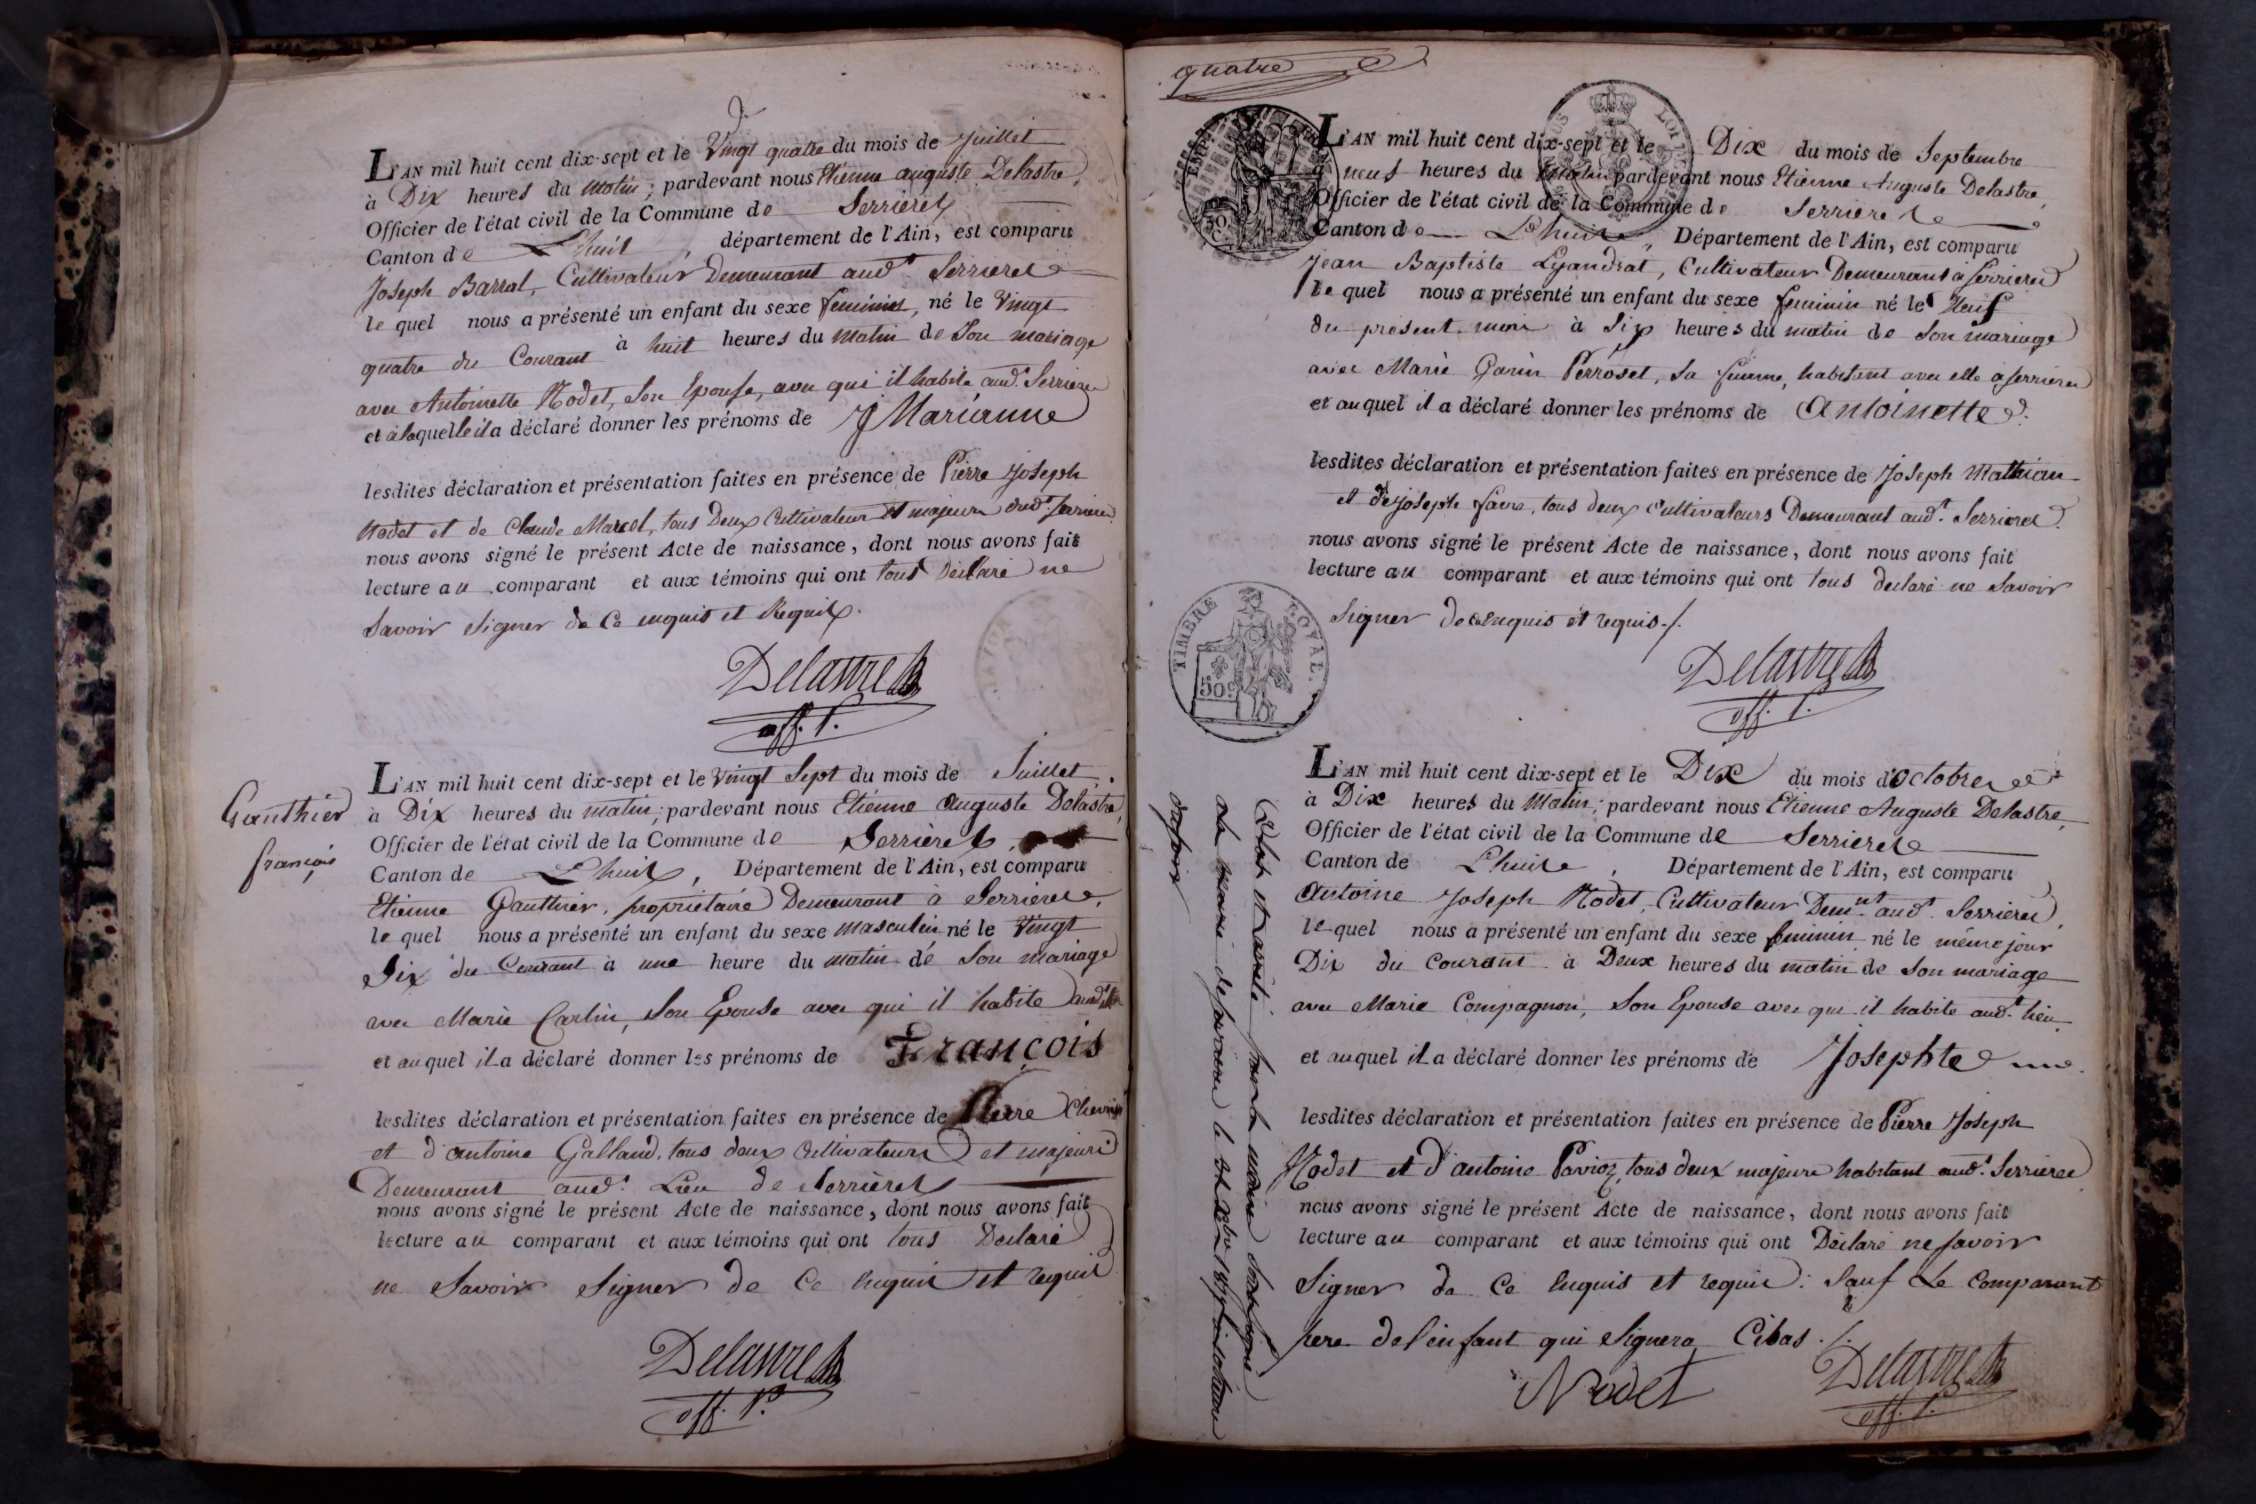 L'AN mil huit cent dix-sept et le Vingt quatre du mois de Juillet
à Dix heures du matin; pardevant nous Etienne auguste Delastre,
Officier de l'état civil de la Commune de Serrieres
Canton de L'huis, département de l'Ain, est comparu
Joseph Barral, Cultivateur Demeurant aud.t Serrieres
le quel nous a présenté un enfant du sexe feminin, né le Vingt
quatre du Courant à huit heures du matin de Son mariage
avec Antoinette Nodet, Son Epouse, avec qui il habite aud.t Serrieres
et à laquelle il a déclaré donner les prénoms de Marianne
lesdites déclaration et présentation faites en présence de Pierre Joseph
Nodet et de Claude Marcel, tous Deux Cultivateurs et majeurs dud.t Serrieres
nous avons signé le présent Acte de naissance, dont nous avons fait
lecture au comparant et aux témoins qui ont tous Déclaré ne
Savoir Signer de Ce enquis et Requis.
Delastre
off. P.
Gauthier
françois
L'AN mil huit cent dix-sept et le vingt Sept du mois de Juillet
à Dix heures du matin; pardevant nous Etienne Auguste Delastre,
Officier de l'état civil de la Commune de Serrieres
Canton de L'huis, Département de l'Ain, est comparu
Etienne Gauthier, propriétaire Demeurant à Serrieres,
le quel nous a présenté un enfant du sexe masculin né le Vingt
Six du Courant à une heure du matin de Son mariage
avec Marie Carlin, Son Epouse avec qui il habite
et auquel il a déclaré donner les prénoms de François
lesdites déclaration et présentation faites en présence de Pierre
et d'antoine Galland, tous deux Cultivateurs et majeurs
Demeurant aud.t Lieu de Serrieres
nous avons signé le présent Acte de naissance, dont nous avons fait
lecture au comparant et aux témoins qui ont tous Déclaré
ne Savoir Signer de Ce enquis et requis
Delastre
off. P.
quatre
TIMBRE ROYAL.
50c
L'AN mil huit cent dix-sept et le Dix du mois de Septembre
à neuf heures du matin pardevant nous Etienne Auguste Delastre,
Officier de l'état civil de la Commune de Serrieres
Canton de L'huis, Département de l'Ain, est comparu
Jean Baptiste Lyandrat, Cultivateur Demeurant à Serrieres
le quel nous a présenté un enfant du sexe feminin né le Neuf
du présent mois à Six heures du matin de Son mariage
avec Marie Garin Perroset, Sa femme, habitant avec elle à Serrieres
et auquel il a déclaré donner les prénoms de Antoinette.
lesdites déclaration et présentation faites en présence de Joseph Mathian
et de Joseph favre, tous deux Cultivateurs Demeurant aud.t Serrieres.
nous avons signé le présent Acte de naissance, dont nous avons fait
lecture au comparant et aux témoins qui ont tous déclaré ne Savoir
Signer de ce enquis et requis./.
Delastre
off. P.
L'AN mil huit cent dix-sept et le Dix du mois d'Octobre
à Dix heures du Matin; pardevant nous Etienne Auguste Delastre,
Officier de l'état civil de la Commune de Serrieres
Canton de L'huis, Département de l'Ain, est comparu
Antoine Joseph Nodet, Cultivateur Dem.nt aud.t Serrieres,
le quel nous a présenté un enfant du sexe feminin né le même jour
Dix du Courant à Deux heures du matin de Son mariage
avec Marie Compagnon, Son Epouse avec qui il habite aud.t lieu
et auquel il a déclaré donner les prénoms de Josephte
lesdites déclaration et présentation faites en présence de Pierre Joseph
Nodet et D'antoine Pavioz, tous deux majeurs habitant aud.t Serrieres
nous avons signé le présent Acte de naissance, dont nous avons fait
lecture au comparant et aux témoins qui ont Déclaré ne Savoir
Signer de Ce enquis et requis: Sauf Le Comparant
pere de l'enfant qui Signera Cibas./.
Nodet
Delastre
off. P.